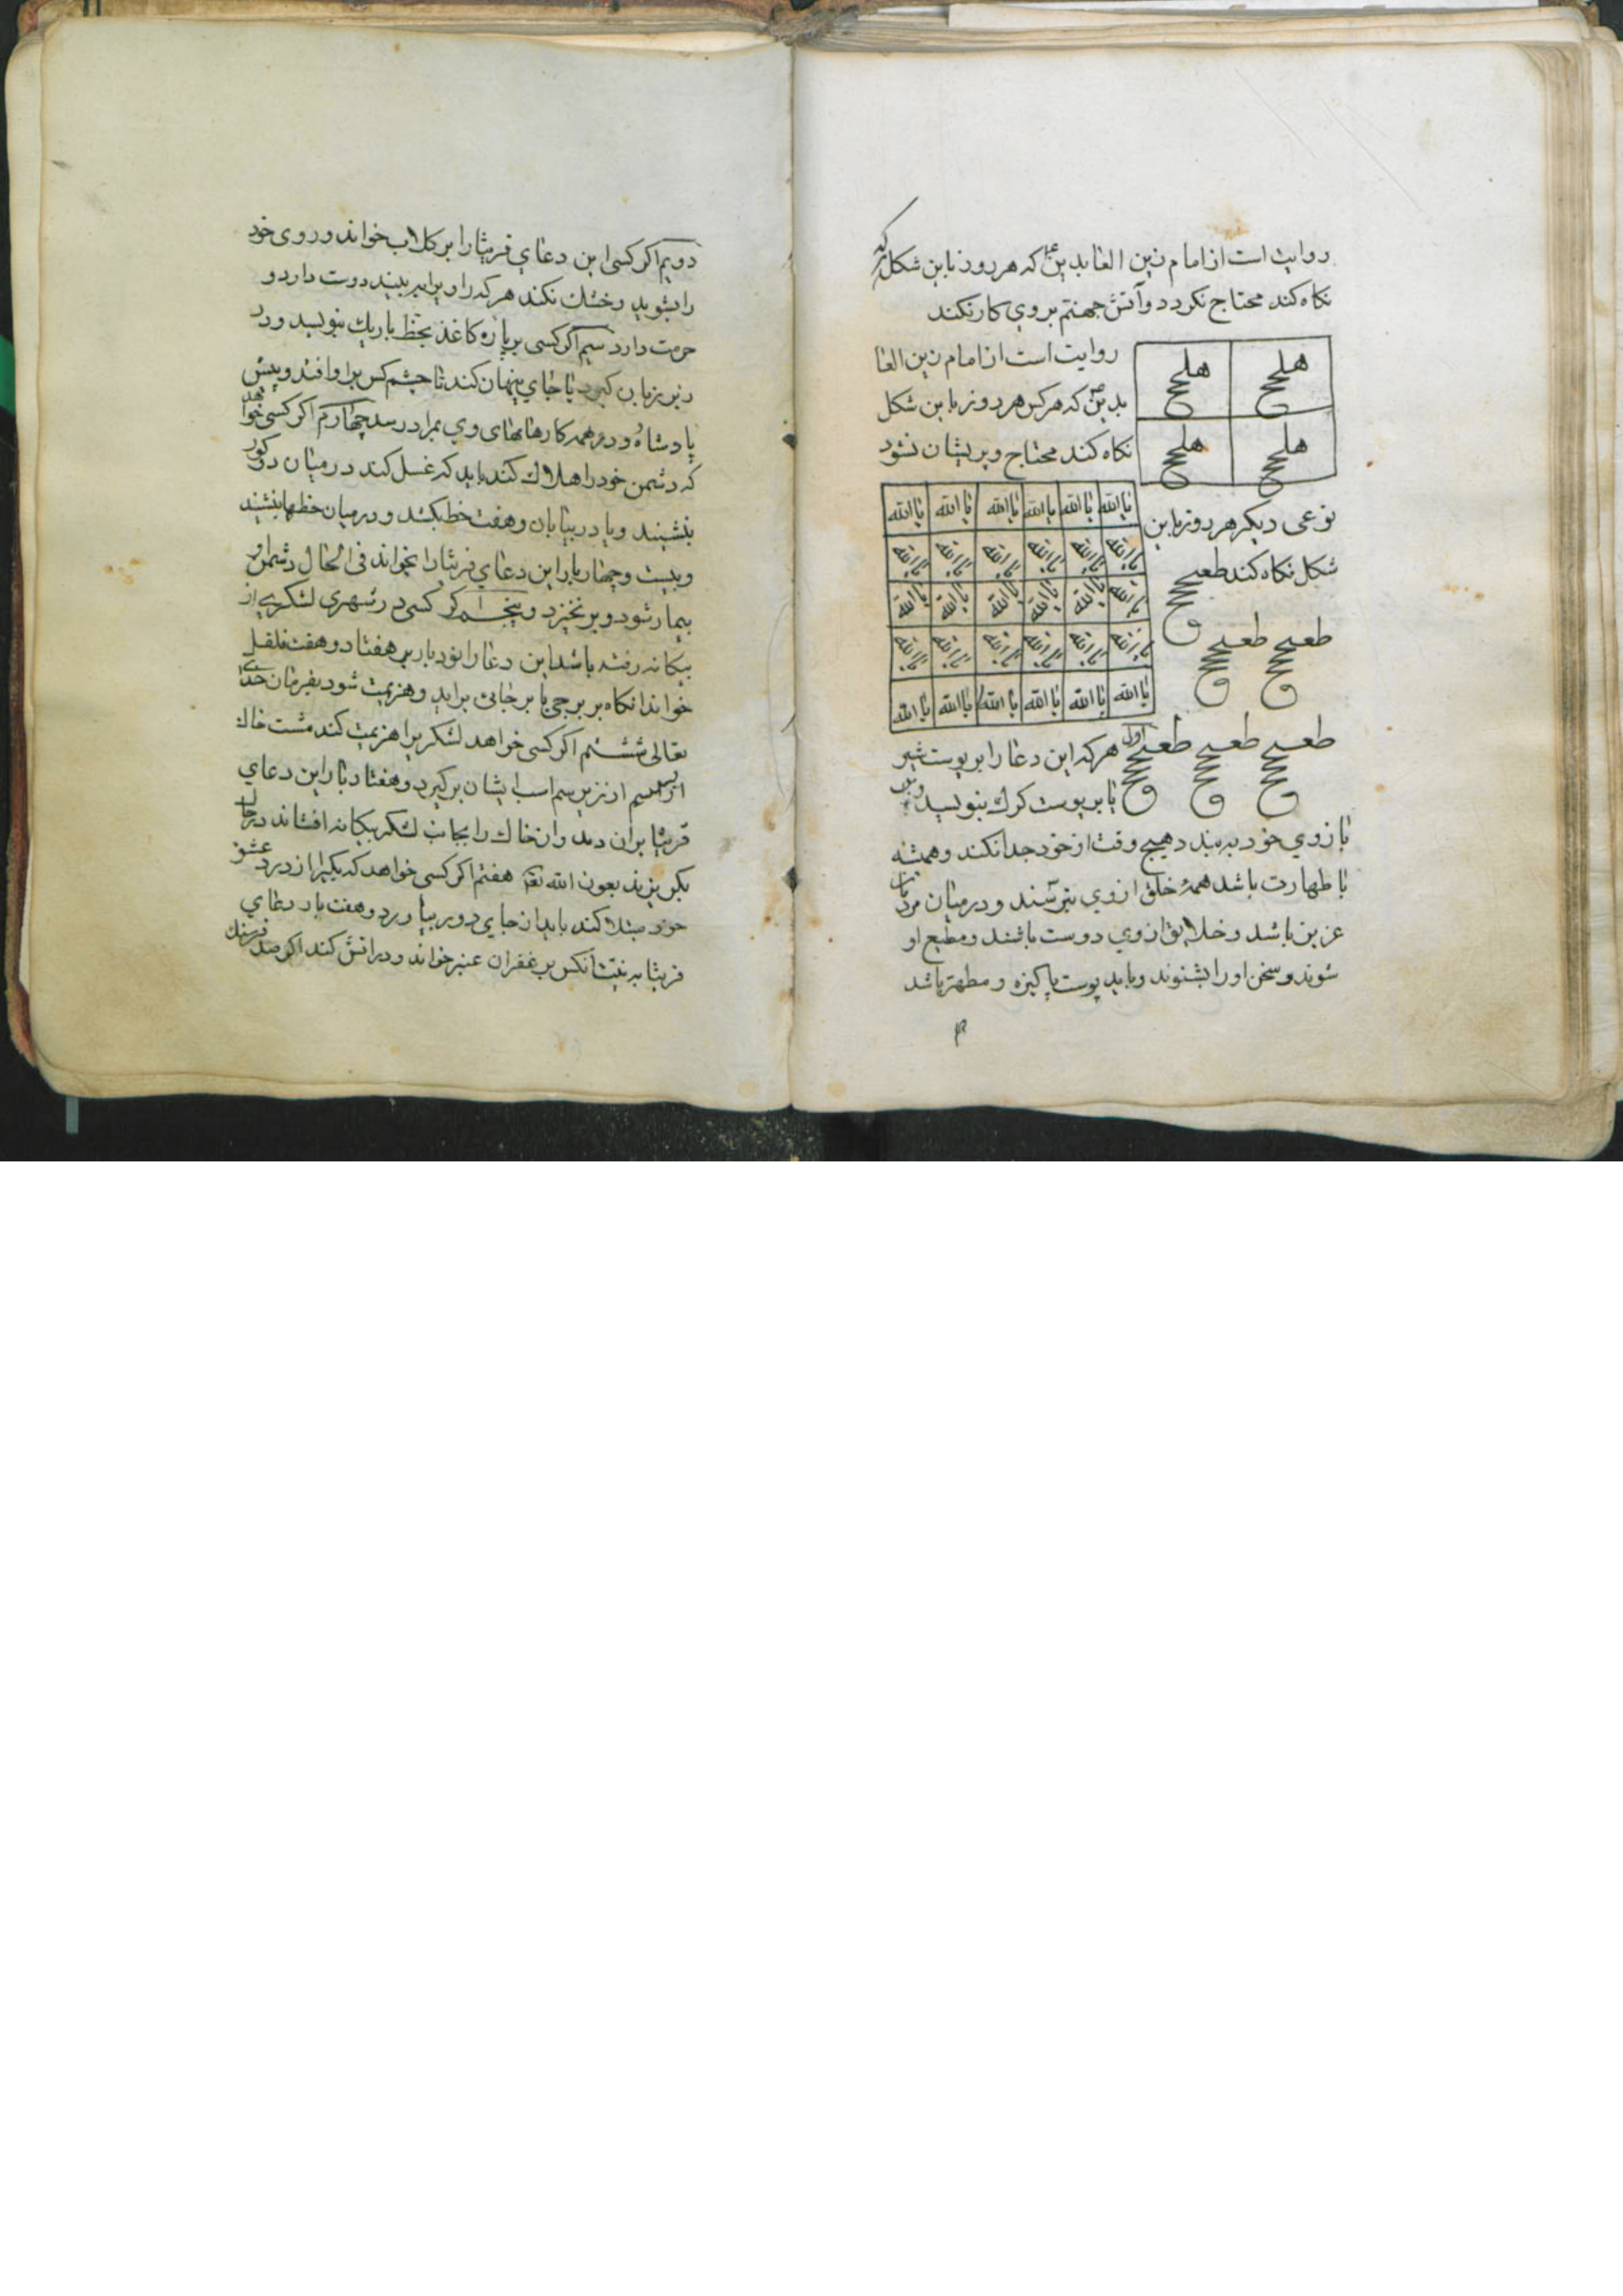 روایت است از امام زین العابدین ع که هر روز باین شکل که
نکاه کند محتاج نکردد و آتش جهنم بروی کار نکند
روایت است از امام زین العا
بدین ع که هر کس هر روز باین شکل
نکاه کند محتاج و پریشان نشود
هلححح هلححح
هلححح هلححح
نوعی دیکر هر روز باین
شکل نکاه کند طعححح
طعححح طعححح
طعححح طعححح طعححح
یا الله یا الله یا الله یا الله یا الله یا الله
یا الله یا الله یا الله یا الله یا الله یا الله
یا الله یا الله یا الله یا الله یا الله یا الله
یا الله یا الله یا الله یا الله یا الله یا الله
یا الله یا الله یا الله یا الله یا الله یا الله
اول هر که این دعا را بر پوست شیر
یا بر پوست کرک بنویسد و بر
بازوی خود به بندد هیچ وقت از خود جدا نکند و همیشه
با طهارت باشد همهٔ خلق از وی بترسند و در میان مردمان
عزیز باشد و خلایق از وی دوست باشند و مطیع او
شوند و سخن او را بشنوند و باید پوست پاکیزه و مطهر باشد
دویم اکر کسی این دعای قرشیا را بر کلاب خواند و روی خود
را بشوید و خشک نکند هر که را و برابر بیند دوست دارد و
حرمت دارد سیم اکر کسی بر پاره کاغذ بخط باریک بنویسد و در
زیر زبان کیرد یا جای پنهان کند تا چشم کس برو افتد و پیش
پادشاه و در همه کارهابهای وی بمراد رسد چهارم اکر کسی خواهد
که دشمن خود را هلاک کند باید که غسل کند در میان دو کور
بنشیند و یا در بیابان و هفت خط بکشد و در میان خطها بنشیند
و بیست و چهار بار این دعای قرشیا را بخواند فی الحال دشمن او
بیمار شود و بر نخیزد و پنجم اکر کسی در شهری لشکری از
بیکانه رفته باشد این دعا را نود بار بر هفتاد و هفت فلفل
خواند انکاه بر برجی یا بر جائی براید و هزیمت شود بفرمان خدای
تعالی ششم اکر کسی خواهد لشکر را هزیمت کند مشت خاک
از زیر سم اسب ایشان برکیرد و هفتاد بار این دعای
قرشیا بران دمد و ان خاک را بجانب لشکر بیکانه افشاند در حال
بکریزند بعون الله تعالی هفتم اکر کسی خواهد که یکی را از درد عشق
خود مبتلا کند باید از جای دور بیاورد و هفت بار دعای
قرشیا به نیت انکس بر غفران عنبر خواند و در اتش کند اکر صد فرسنک